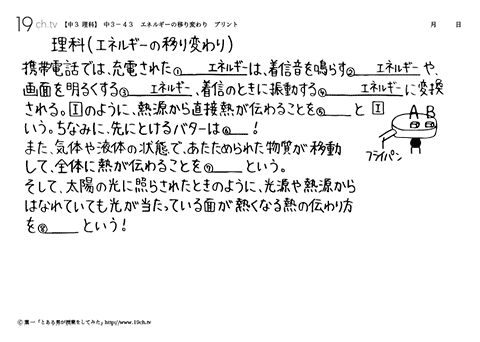 19ch.tv 【中3 理科】 中3-43 エネルギーの移り変わり プリント 月 日
理科(エネルギーの移り変わり)
携帯電話では、充電された①____エネルギーは、着信音を鳴らす②____エネルギーや、
画面を明るくする③____エネルギー、着信のときに振動する④____エネルギーに変換
される。Iのように、熱源から直接熱が伝わることを⑤____と
いう。ちなみに、先にとけるバターは⑥____!
また、気体や液体の状態で、あたためられた物質が移動
して、全体に熱が伝わることを⑦____という。
そして、太陽の光に照らされたときのように、光源や熱源から
はなれていても光が当たっている面が熱くなる熱の伝わり方
を⑧____という!
I
A B
フライパン
© 葉一「とある男が授業をしてみた」http://www.19ch.tv